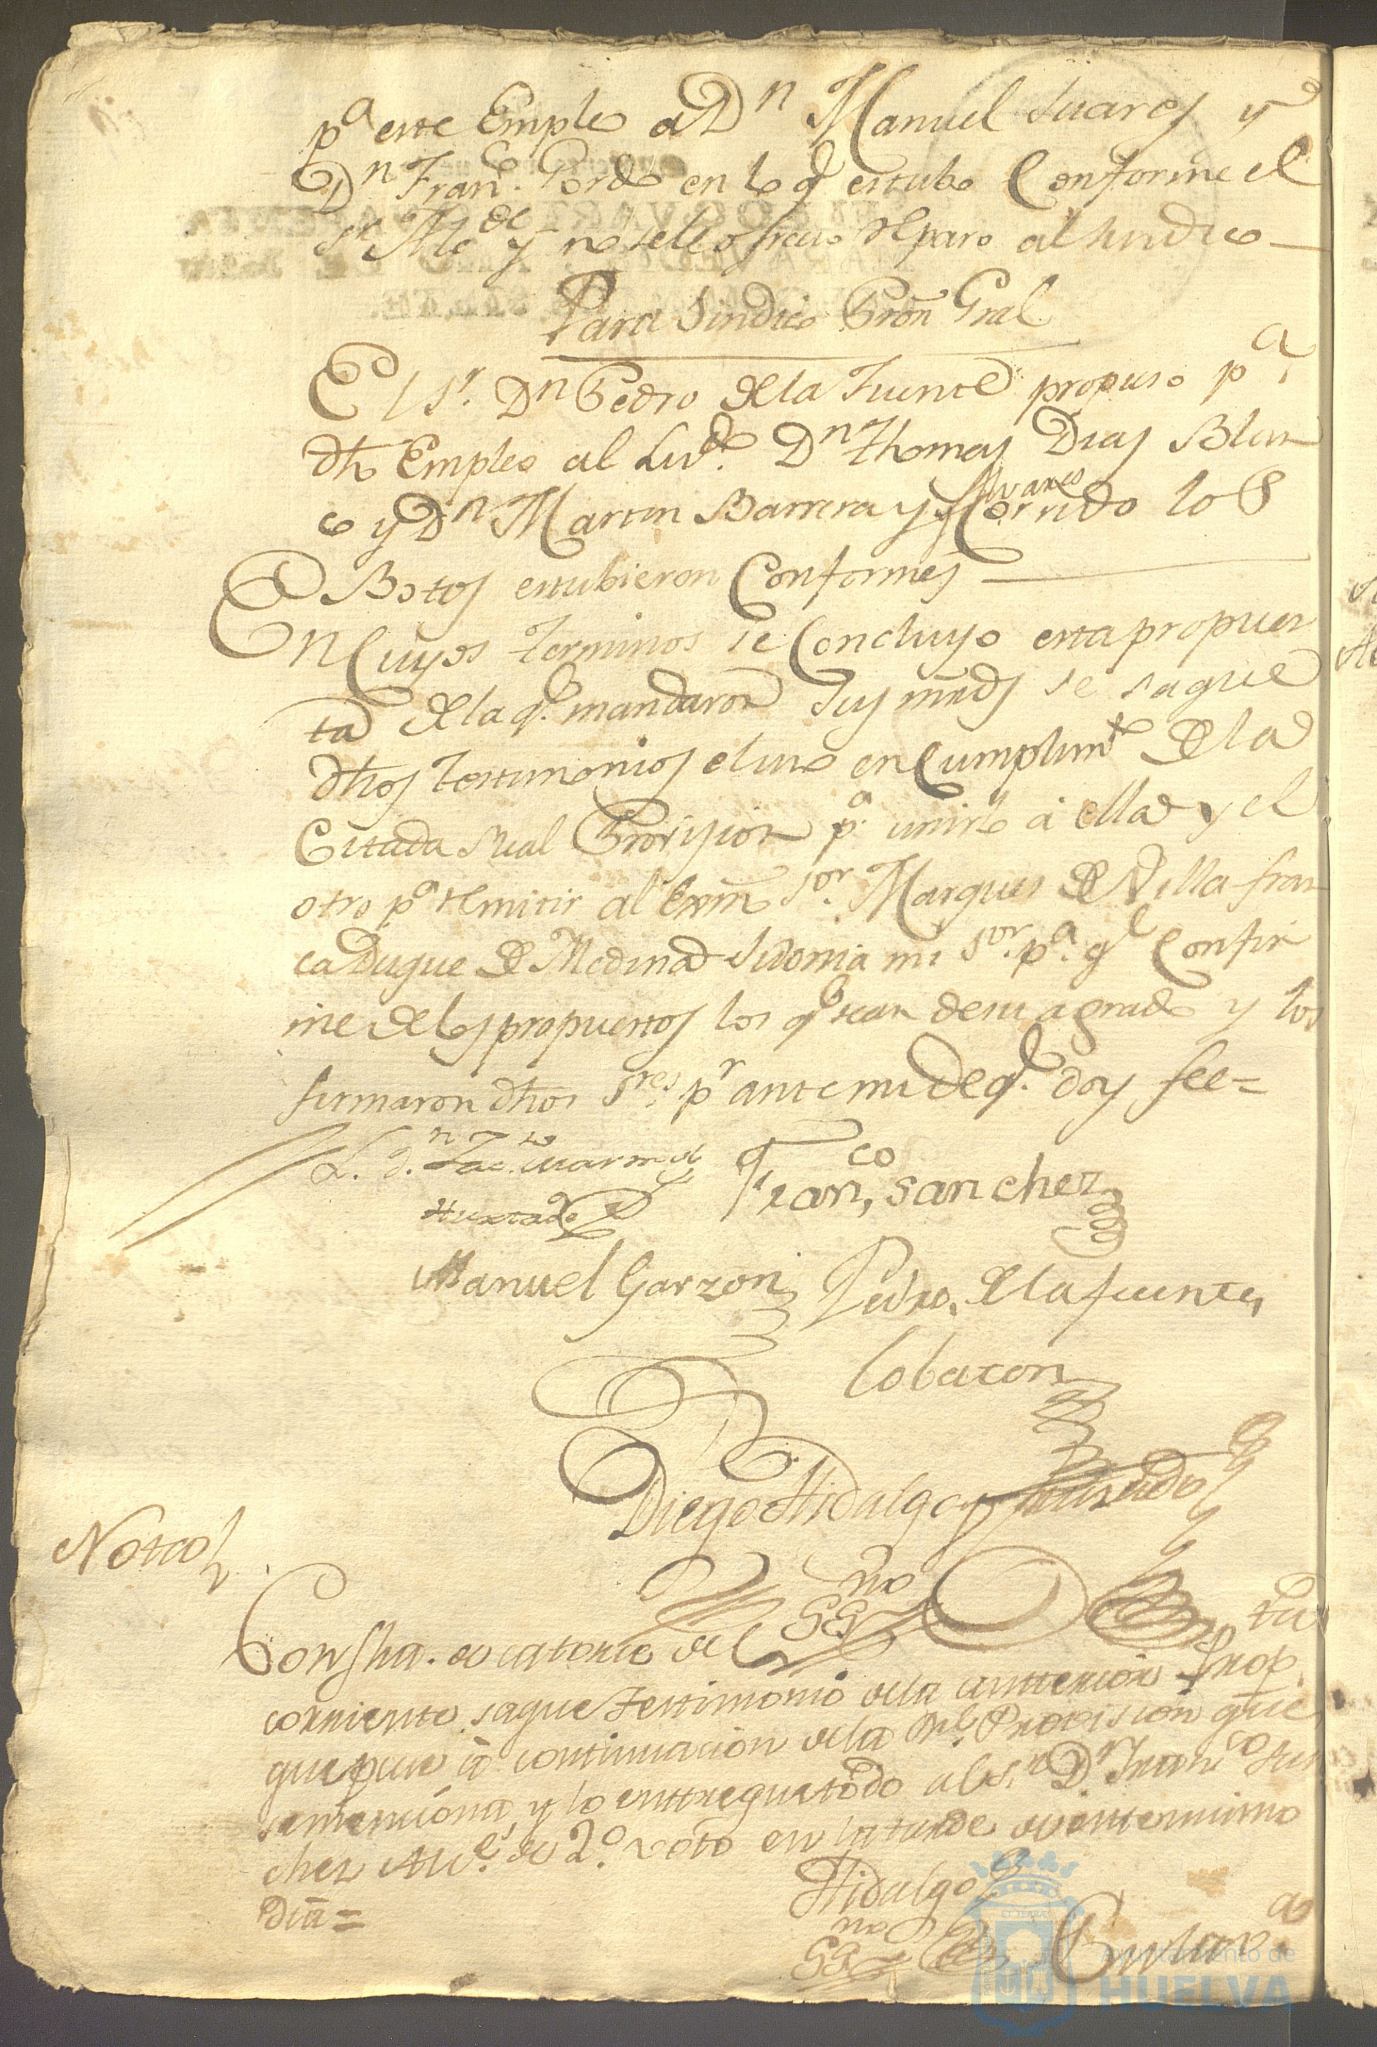 pª este Empleo a Dn Manuel Suares y
Dn Franco. Gordo en lo q estubo Conforme el
Sr Alcde y no se le ofrecio reparo al Sindico
Para Sindico Pron Gral
El Sr. Dn Pedro de la Fuente propuso pª
dho Empleo al Licdo. Dn Thomas Dias Blan
co y Dn Martin Barrera y Alvares Corrido los
Botos estubieron Conformes
En Cuyos terminos se Concluyo esta propues
ta de la q. mandaron sus mrds se saque
dhos testimonios el uno en Cumplimto de la
Citada Real Provision pª unirlo a ella y el
otro pª remitir al Exmo Sor. Marques de Villa fran
ca Duque de Medina Sidonia mi Sor. pª q Confir
me de los propuestos los q sean de su agrado y los
firmaron dhos Sres. pr ante mi de q. doy fee=
L. d.n
Hurtado
Franco, Sanchez
Manuel Garzon
Pedro, de la fuente,
lobaton
Diego Hidalgo y
SSno
Nota
Con fha. de catorce de
corriente saque testimonio de la antterior Prop.ta
que puse à continuacion de la Rl. Provision que
se menciona, y lo enttregue todo al Sr. Dn Franco San
chez Alce. de 2º. voto en la tarde de este mismo
Dia=
Hidalgo
SSno
Ayuntamiento de
HUELVA